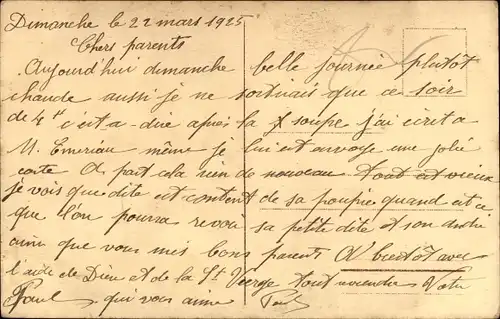 Dimanche le 22 mars 1925
Chers parents
Aujourd'hui dimanche belle journée plutôt
chaude aussi je ne sortirais que ce soir
de 4h c'est a-dire après la soupe j'ai écrit a
M. Emeriau même je lui est envoye une jolie
carte A part cela rien de nouveau tout est vieux
je vois que dite est content de sa poupée quand est a
que l'on pourra revoir sa petite dite et son
ainsi que vous mes bons parents A bientôt avec
l'aide de Dieu et de la Ste Vierge tout viendra Votre
Paul qui vous aime Paul